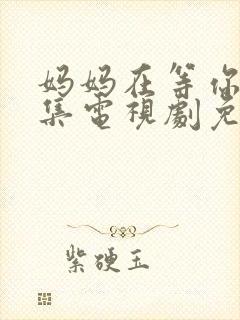 妈妈在等你
集電視劇免
紫硬玉